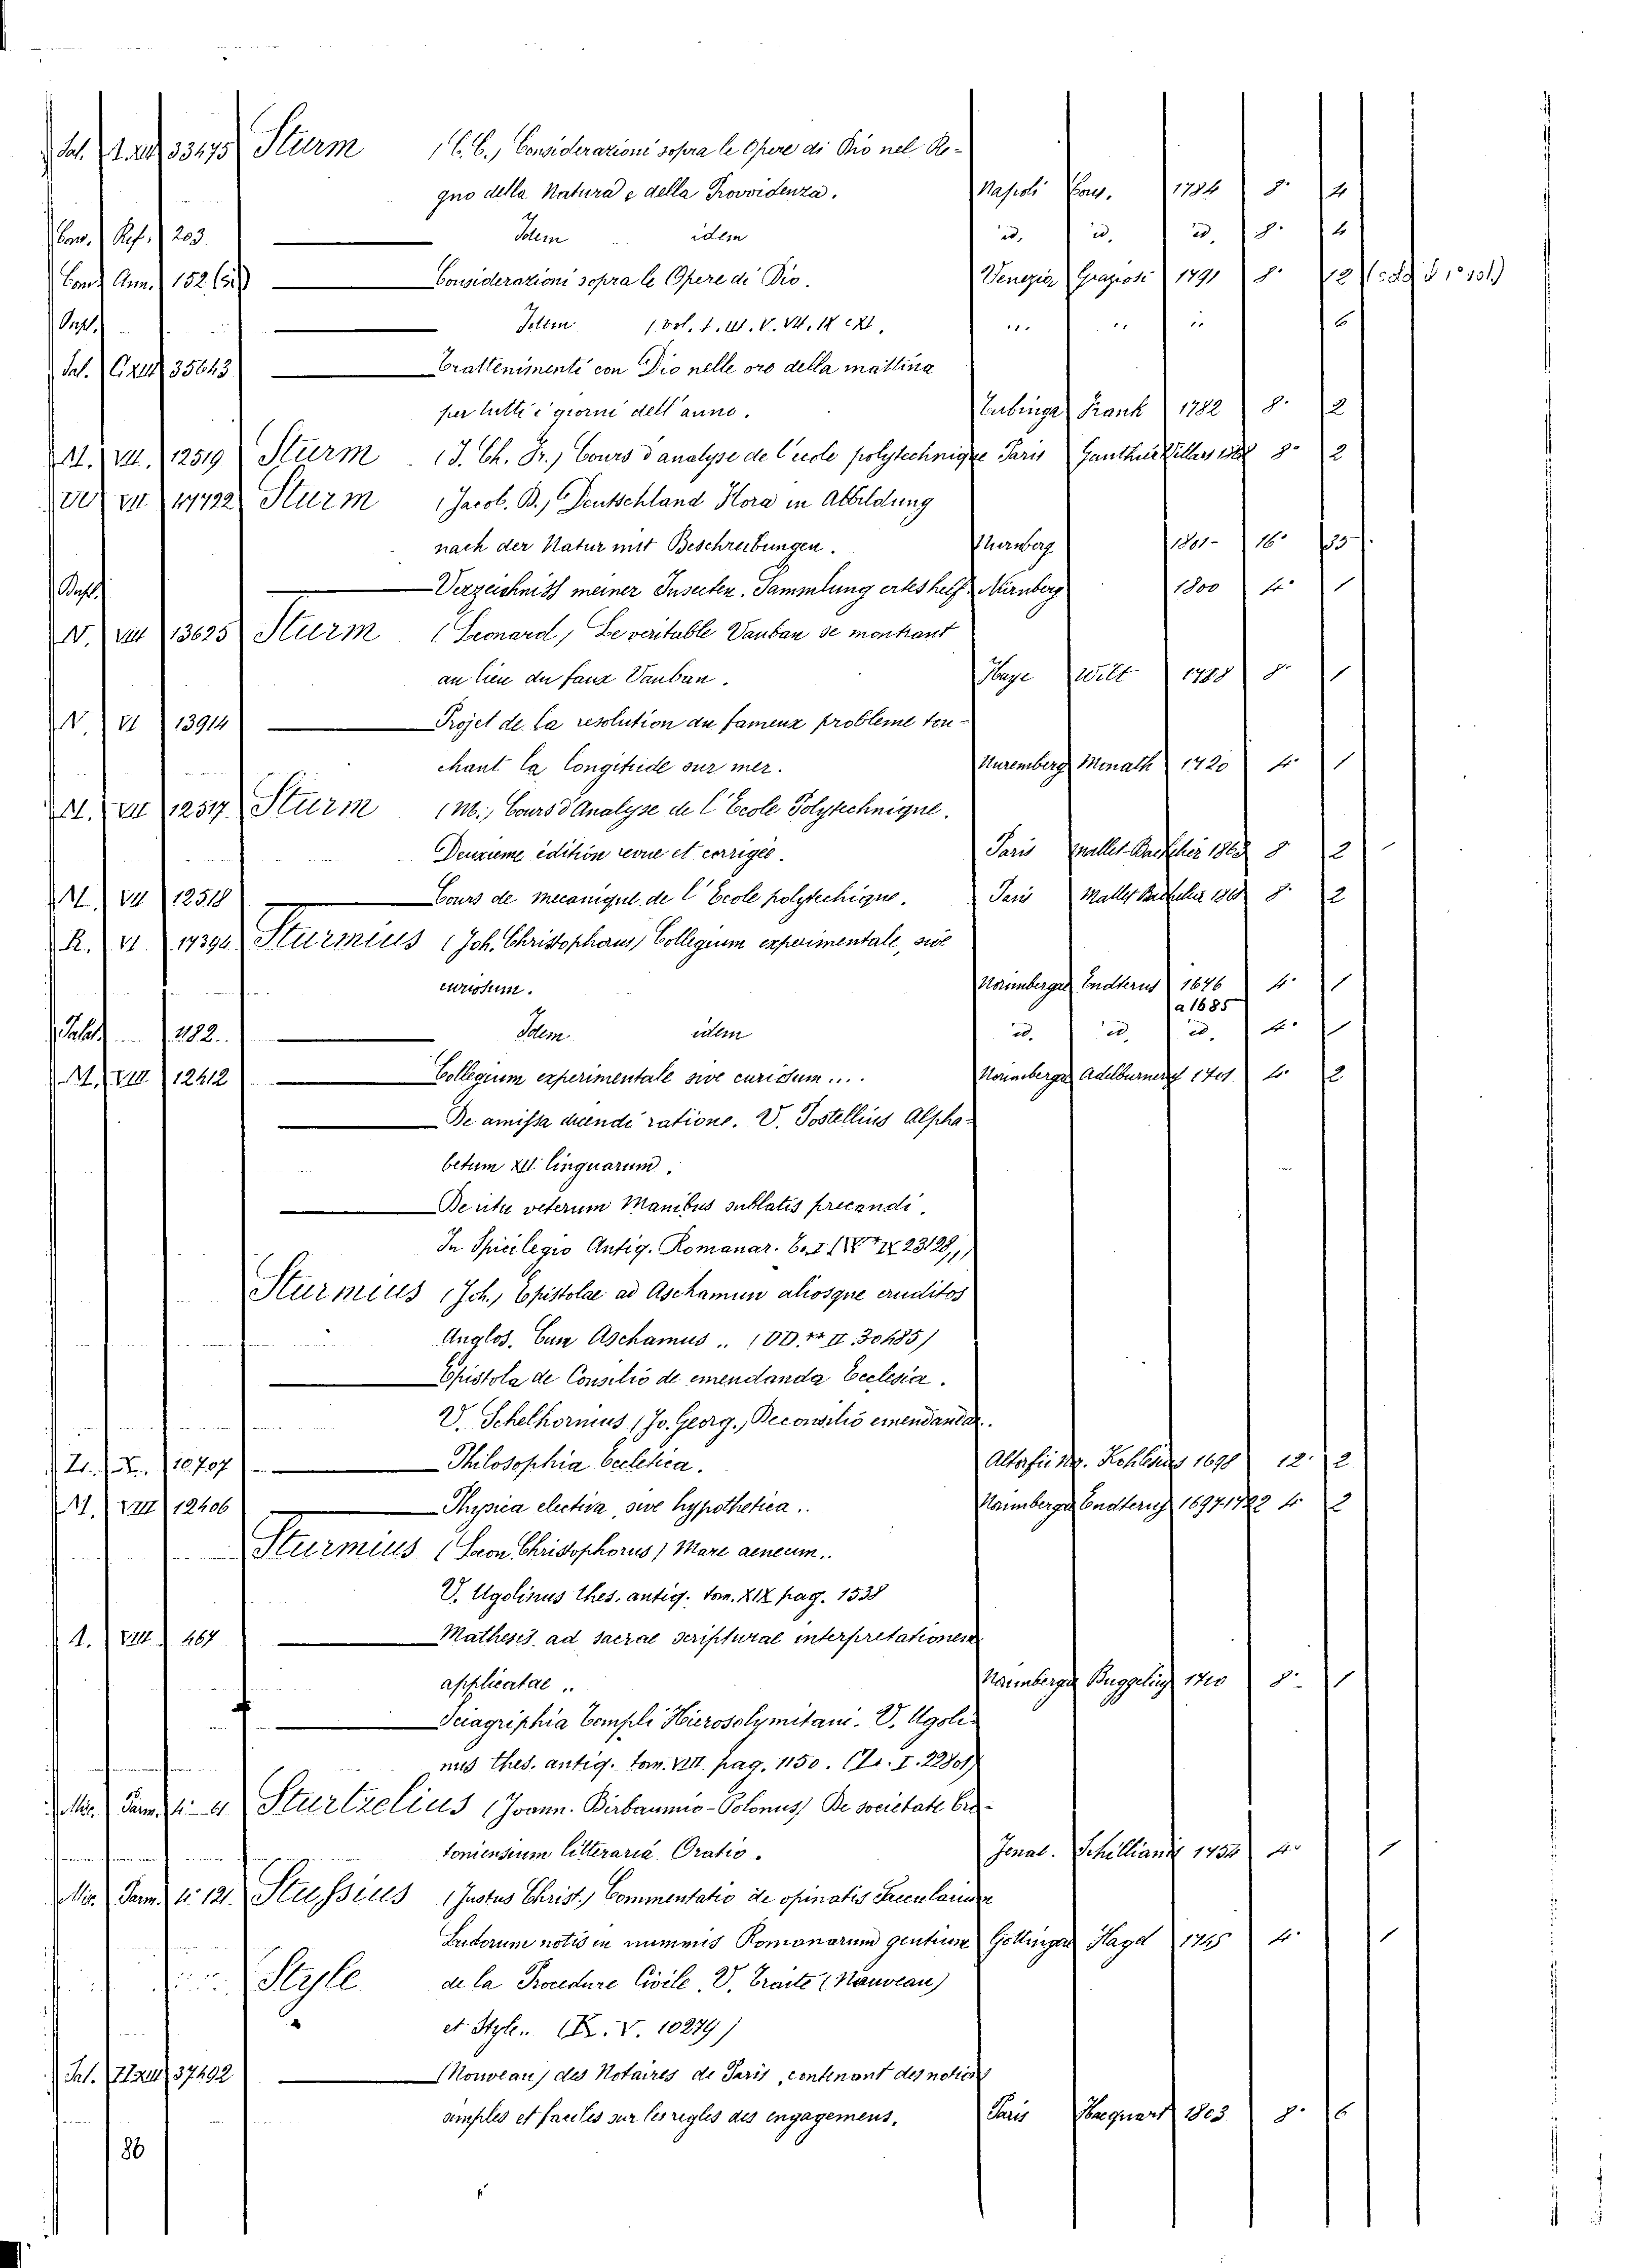 Sal. 33475 Sturm (C. C.) Considerazioni sopra le Opere di Dio nel Re-
gno della Natura e della Provvidenza. Napoli 1784 8° 4
Conv. Ref. 203 Idem idem id. id. id. 8° 4
Conv. Ann. 152 Considerazioni sopra le Opere di Dio. Venezia Graziosi 1791 8° 12
Dupl. Idem (vol. I. III. V. VII. IX e XI. " " " 6
Sal. 35643 Trattenimenti con Dio nelle ore della mattina
per tutti i giorni dell'anno. Tubinga Frank 1782 8° 2
M. VII. 12519 Sturm (J. Ch. Fr.) Cours d'analyse de l'ecole polytechnique Paris Gauthier Villars 8° 2
VII 17722 Sturm (Jacob. B.) Deutschland Flora in Abbildung
nach der Natur mit Beschreibungen. Nurnberg 1801- 16°
Dupl. Verzeichniss meiner Insecten-Sammlung Nürnberg 1800 4° 1
N. VIII 13625 Sturm (Leonard) Le veritable Vauban se montrant
au lieu du faux Vauban. Haye Wilt 1708 8° 1
N. VI 13914 Projet de la resolution du fameux probleme tou-
chant la longitude sur mer. Nuremberg Monath 1720 4° 1
M. VII 12517 Sturm (M.) Cours d'Analyse de l'Ecole Polytechnique.
Deuxieme édition revue et corrigée. Paris Mallet-Bachelier 1863 8 2
M. VII 12518 Cours de mecanique de l'Ecole polytechique. Paris Mallet Bachelier 8° 2
R. VI. 17394 Sturmius (Joh. Christophorus) Collegium experimentale, sive
curiosum. Norimbergae Endterus 1676 4° 1
a 1685
Palat. 1182. Idem. idem id. id. id. 4° 1
M. VIII 12412 Collegium experimentale sive curiosum.... Norimbergae Adelburneri 1701. 4° 2
De amissa dicendi ratione. V. Postellius Alpha-
betum XII linguarum.
De ritu veterum Manibus sublatis precandi.
In Spicilegio Antiq. Romanar. IX 23128,,)
Sturmius (Joh.) Epistolae ad Aschamum aliosque eruditos
Anglos. Cum Aschamus.. II. 30485)
Epistola de Consilio de emendanda Ecclesia.
V. Schelhornius (Jo. Georg.) De consilio emendandae.
X. 10707 Philosophia Eccletica. Altorfii 1698 12° 2
M. VIII 12406 Physica electiva, sive hypothetica.. Norimbergae Endterus 1697-1722 4° 2
Sturmius (Leon. Christophorus) Mare aeneum..
V. Ugolinus thes. antiq. tom. XIX pag. 1538
A. VIII. 467 Mathesis ad sacrae scripturae interpretationem
applicatae.. Norimbergae Buggeling 1710 8° 1
Sciagriphia Templi Hierosolymitani. V. Ugoli-
nus thes. antiq. tom. VIII. pag. 1150. I. 22801)
Mis. Parm. Sturtzelius (Joann. Birbaumio-Polonus) De societate
toniensium litteraria Oratio. Jenae. 1754 4° 1
Mis. Parm. 4° 121. Stussius (Justus Christ.) Commentatio de opinatis Saecularium
Ludorum notis in nummis Romanorum gentium Gottingae Hagd 1745 4° 1
Style de la Procedure Civile. V. Traité (Nouveau)
et Style.. V. 10279)
Sal. 37492 (Nouveau) des Notaires de Paris, contenant des notions
simples et faciles sur les regles des engagemens, Paris Hacquart 1803 8° 6
86